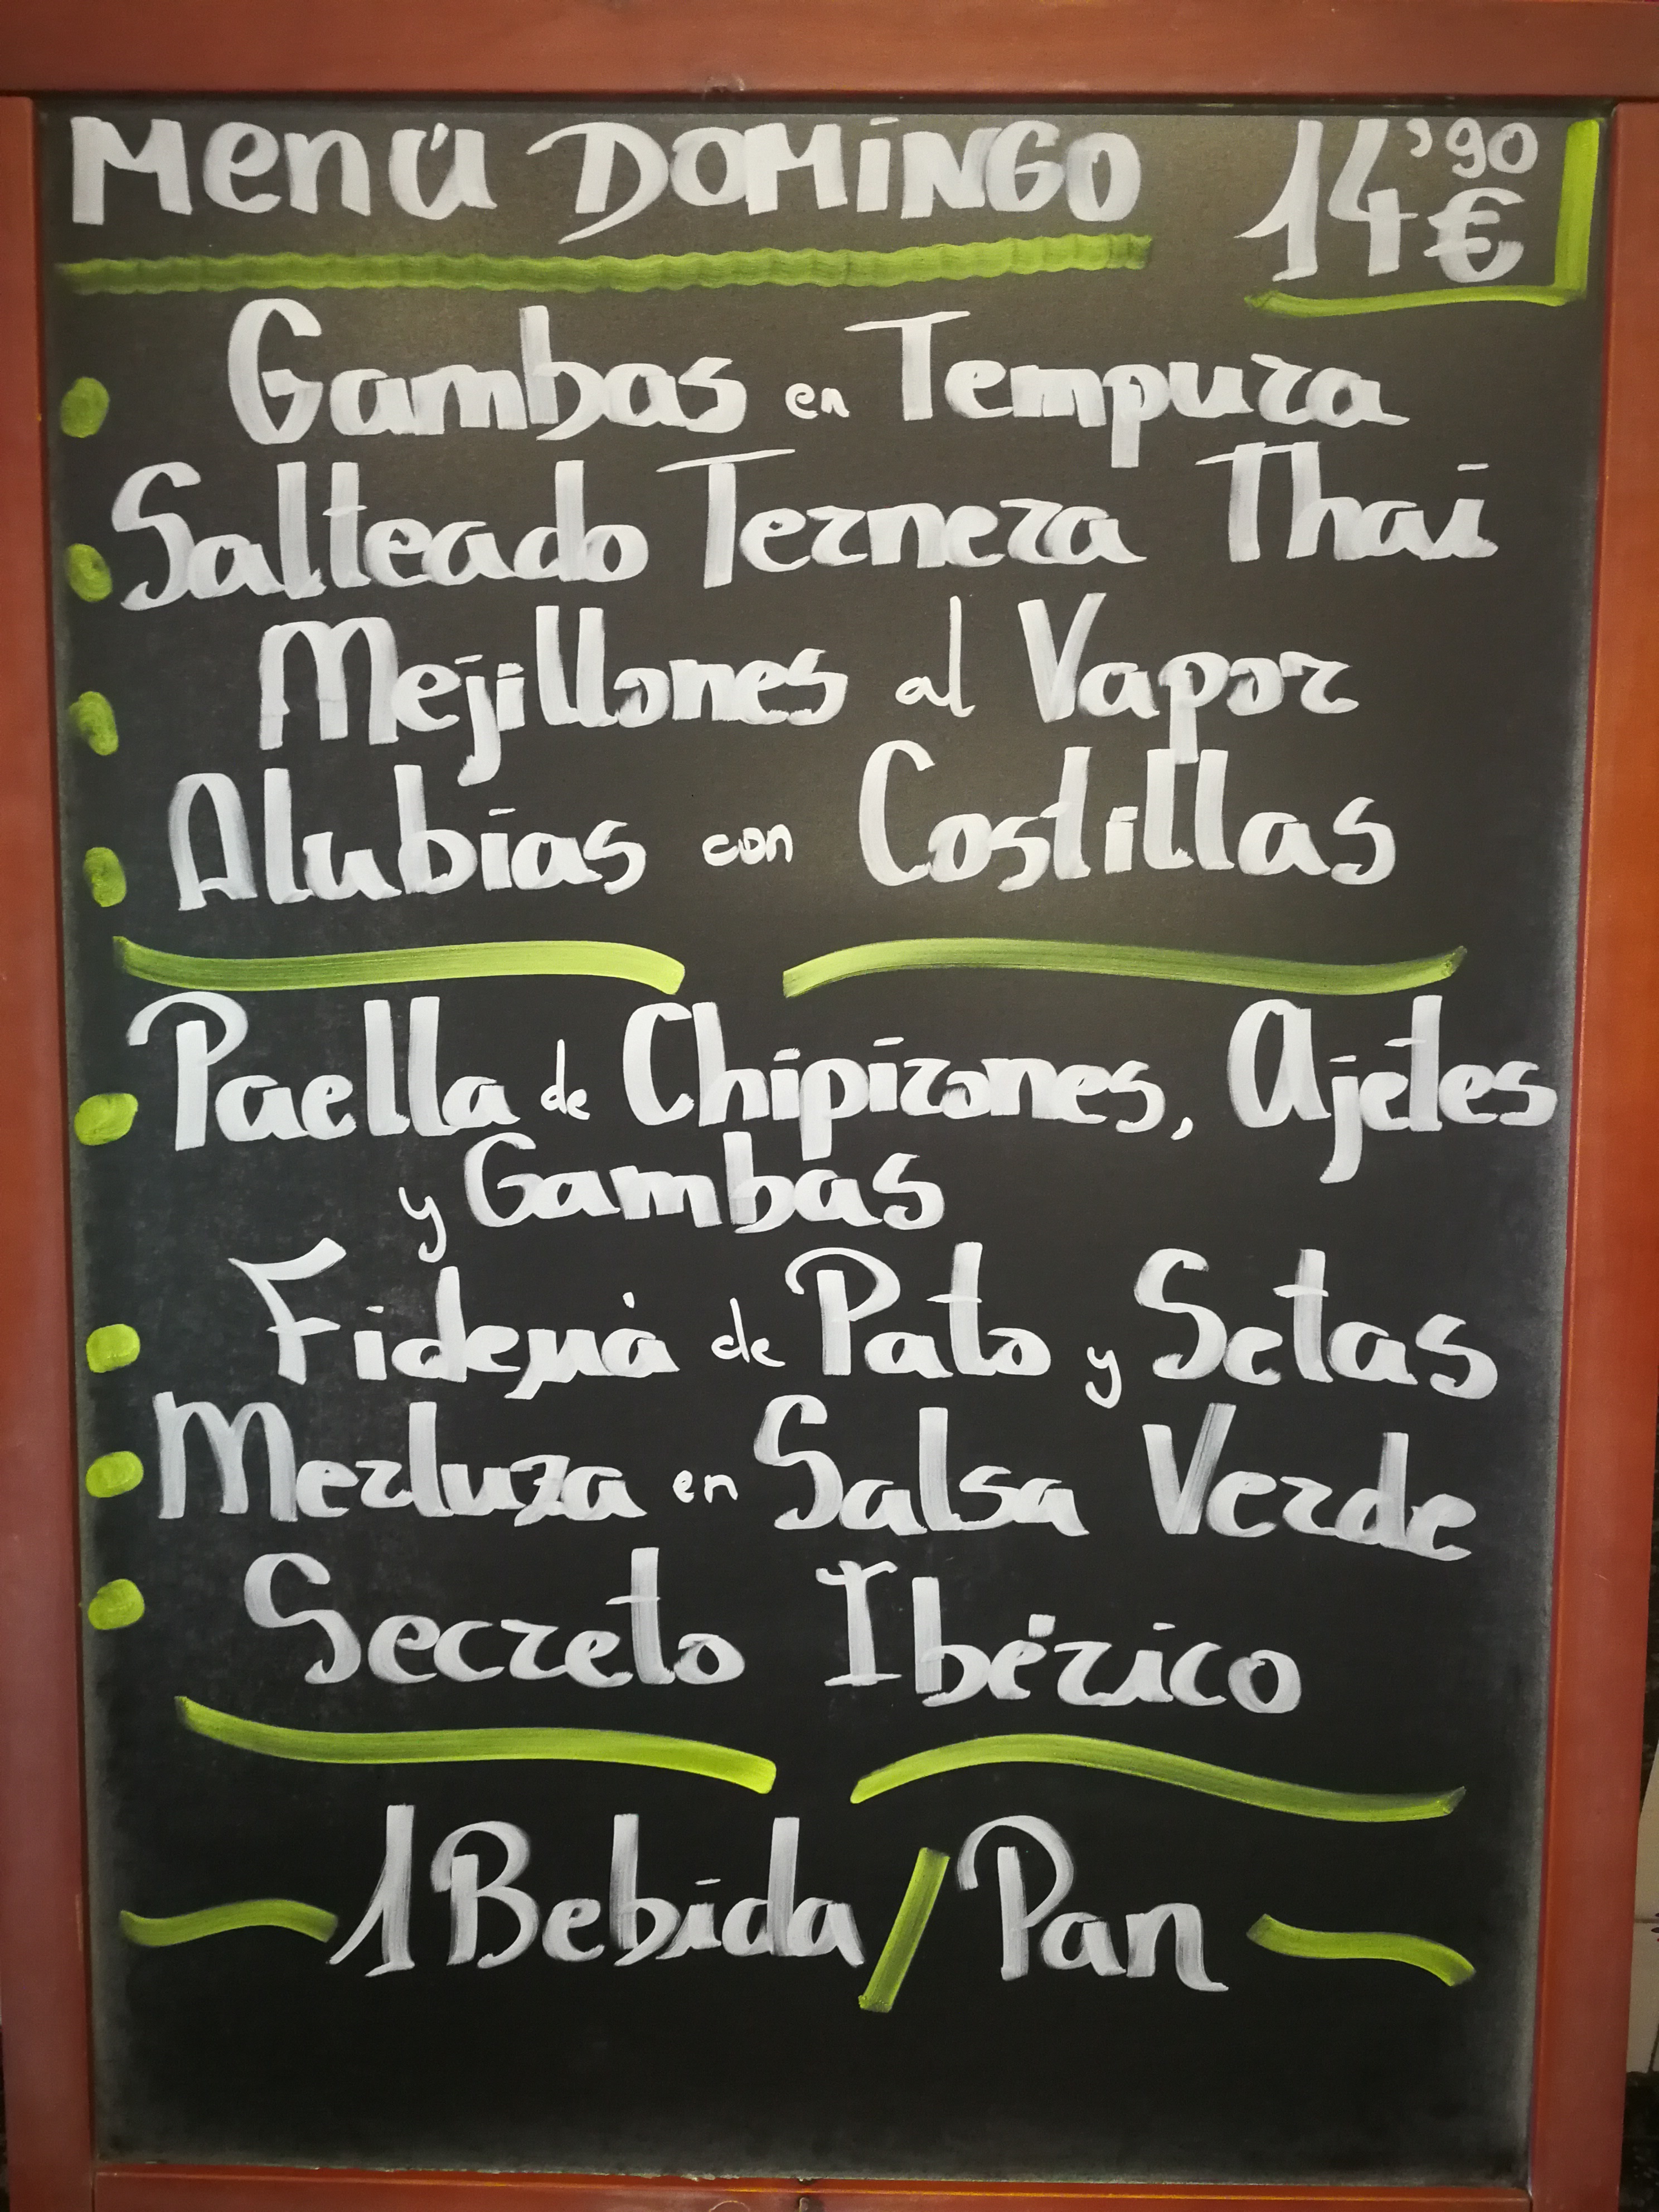 Menú DOMINGO 14'90 €
Gambas en Tempura
Salteado Ternera Thai
Mejillones al Vapor
Alubias con Costillas
Paella de Chipirones, Ajetes
y Gambas
Fideuá de Pato y Setas
Merluza en Salsa Verde
Secreto Ibérico
1 Bebida / Pan